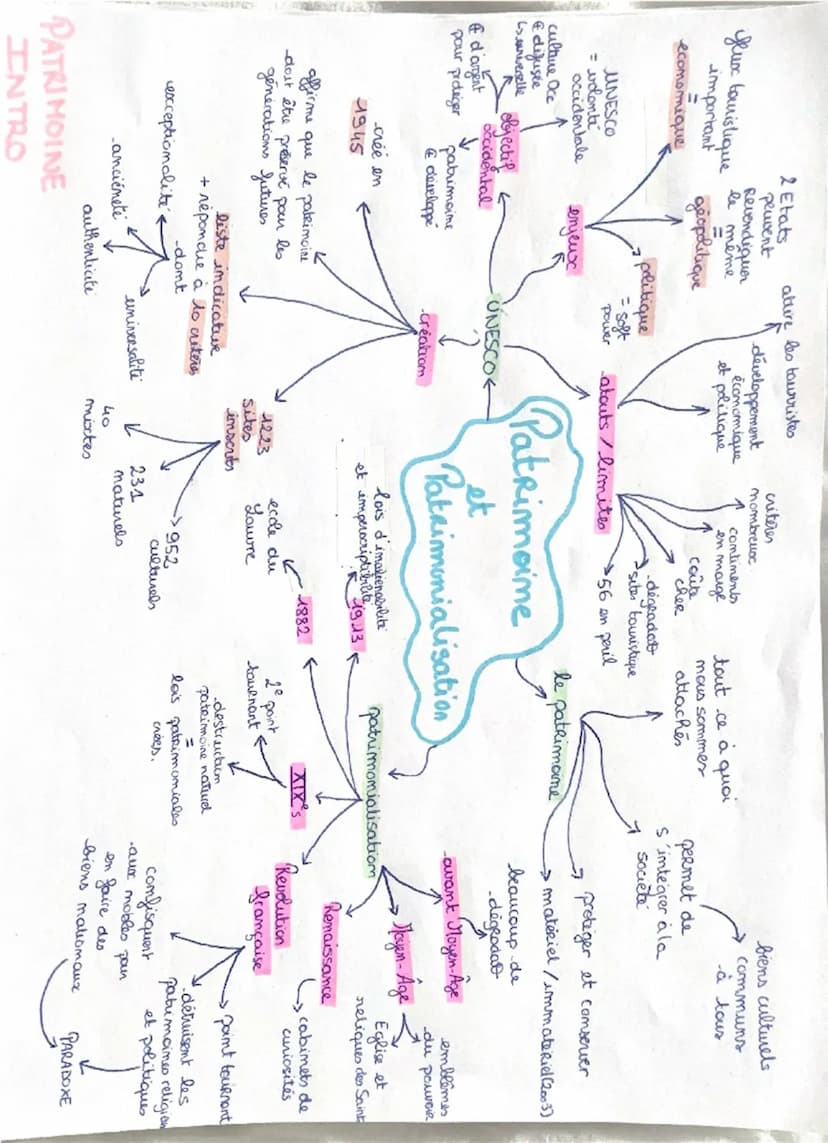 PATRIMOINE
INTRO
Patrimoine
et
Patrimonialisation
UNESCO
enjeux
économique
=
important
yeux touristique
géopolitique
=
2 Etats
peuvent
revendiquer
le même
politique
= soft
power
objectif
occidental
UNESCO
= volonté
occidentale
culture Occ
⊕ diffusée
↳ universelle
⊕ d'argent
pour protéger
patrimoine
⊕ développé
création
-créé en
1945
affirme que le patrimoine
-doit être préservé pour les
générations futures
liste indicative
+ répondre à 10 critères
-dont
exceptionalité
-ancienneté
authenticité
universalité
1223
sites
inscrits
40
mixtes
231
naturels
952
culturels
atouts / limites
attire les touristes
-développement
économique
et politique
critères
nombreux
continents
en marge
coûte
cher
-dégradat°
sites touristique
56 en péril
le patrimoine
tout ce à quoi
nous sommes
attachés
permet de
s'intégrer à la
société
biens culturels
communs
-à tous
protéger et conserver
matériel / immatériel (2003)
patrimonialisation
avant Moyen-Âge
beaucoup de
-dégradat°
Moyen-Âge
emblèmes
du pouvoir
Eglise et
reliques des Saint
Renaissance
cabinets de
curiosités
Révolution
française
point tournant
-détruisent les
patrimoines religieu
et politiques
confisquent
-aux nobles pour
en faire des
biens nationaux
PARADOXE
XIXe s
2e point
tournant
-destruction
patrimoine naturel
=
lois patrimoniales
créés.
1882
école du
Louvre
1913
lois d'inaliénabilité
et imprescriptibilité